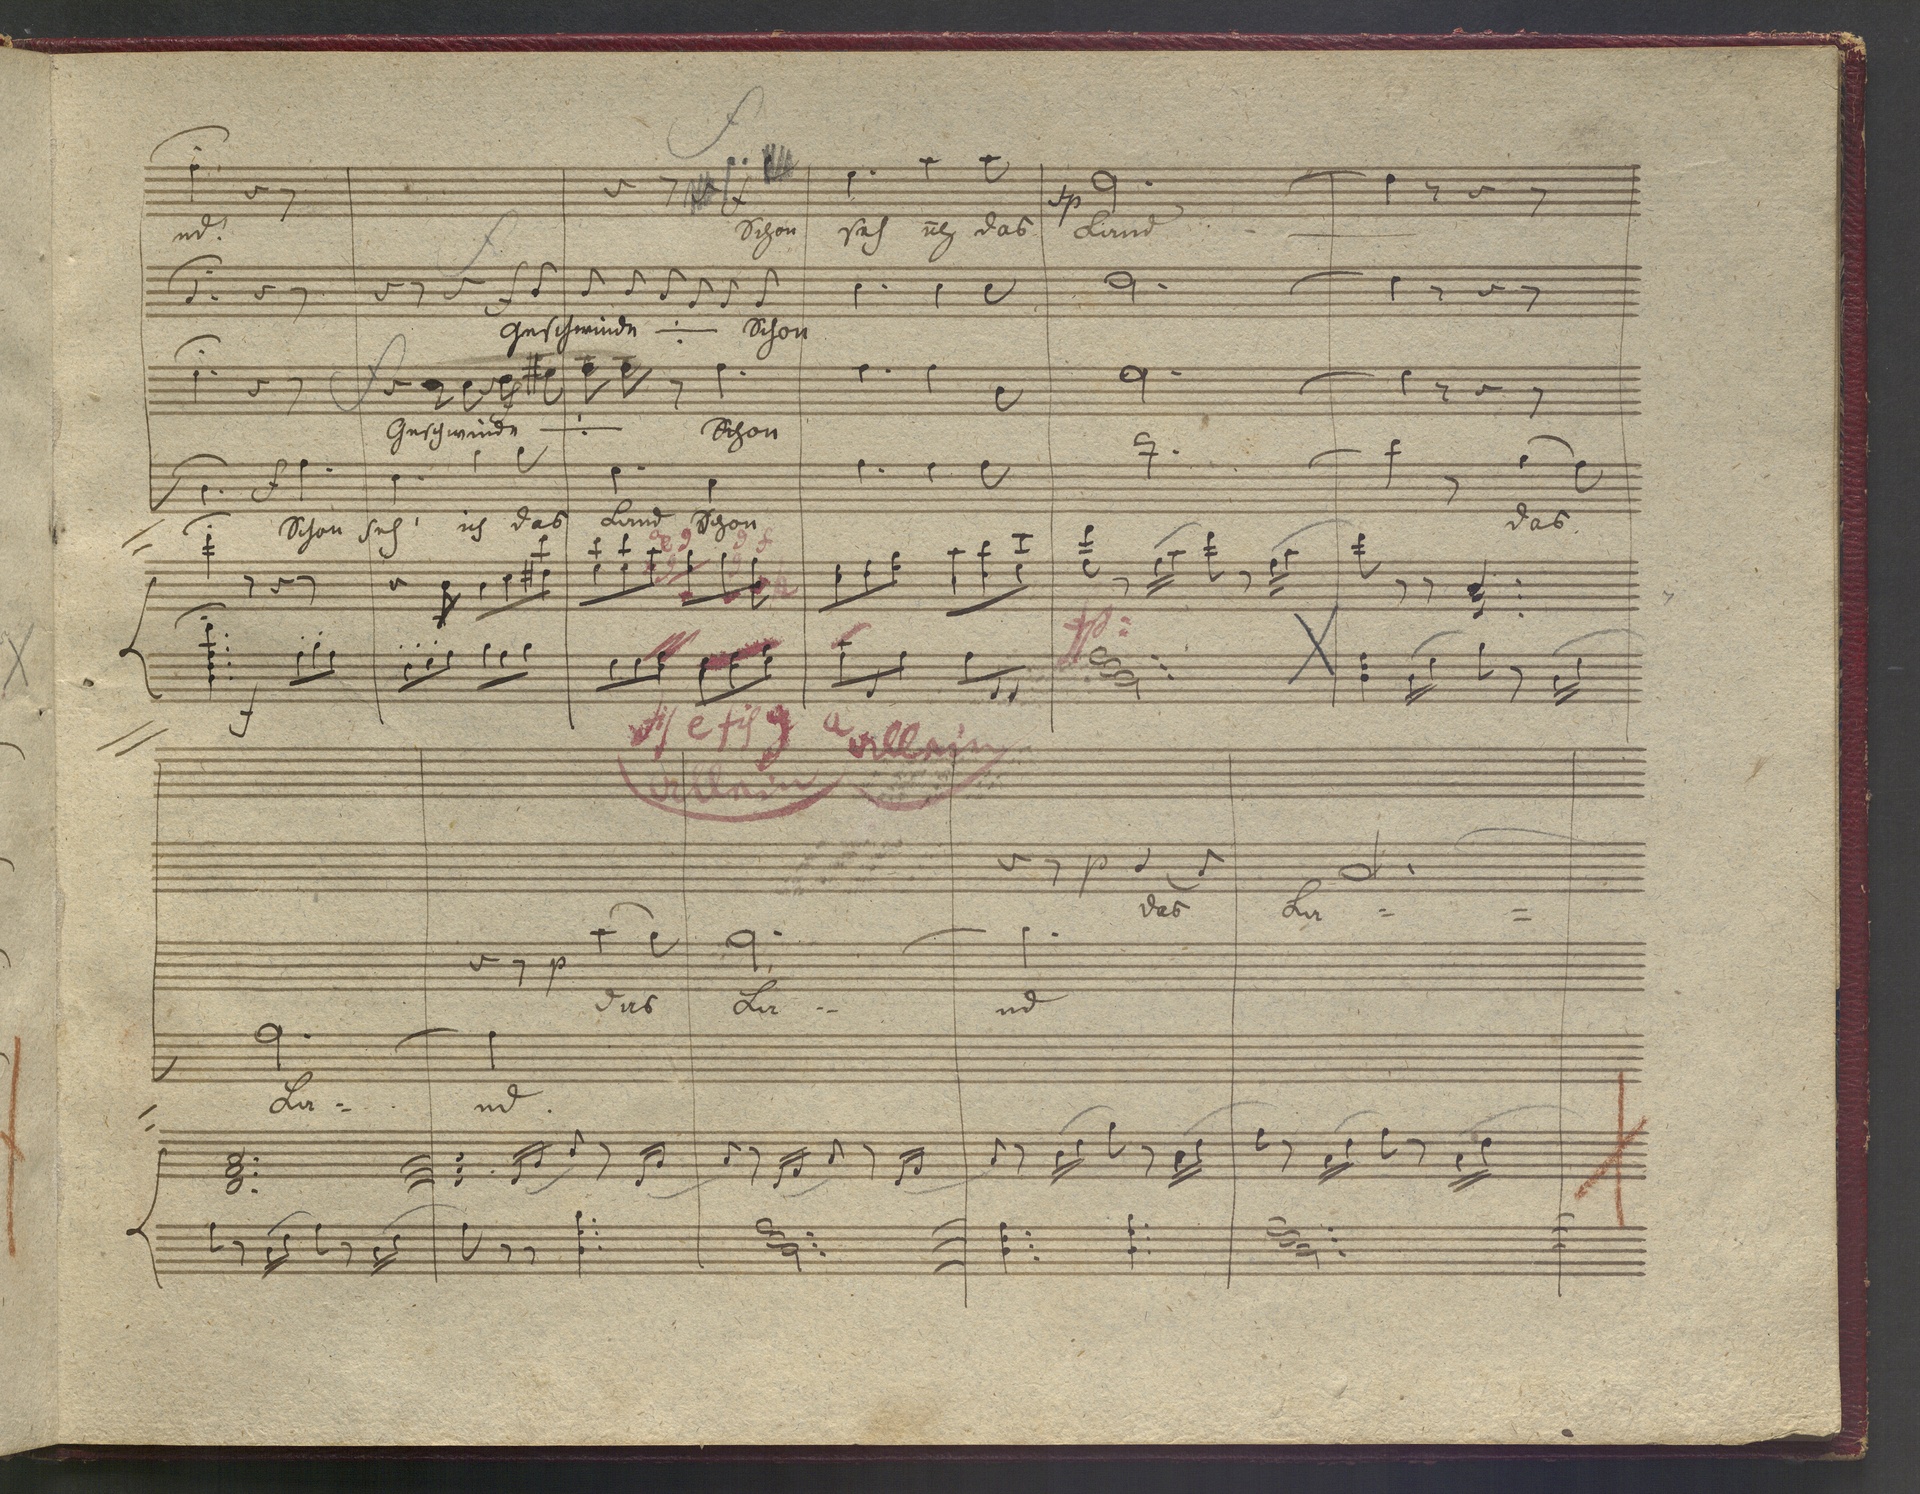 nd!
Schon seh ich das Land
Geschwinde Schon
Geschwinde Schon
Schon seh' ich das Land Schon das
f
fis e fis g a allein
allein
das La - -
p
das La - - nd
La - nd.